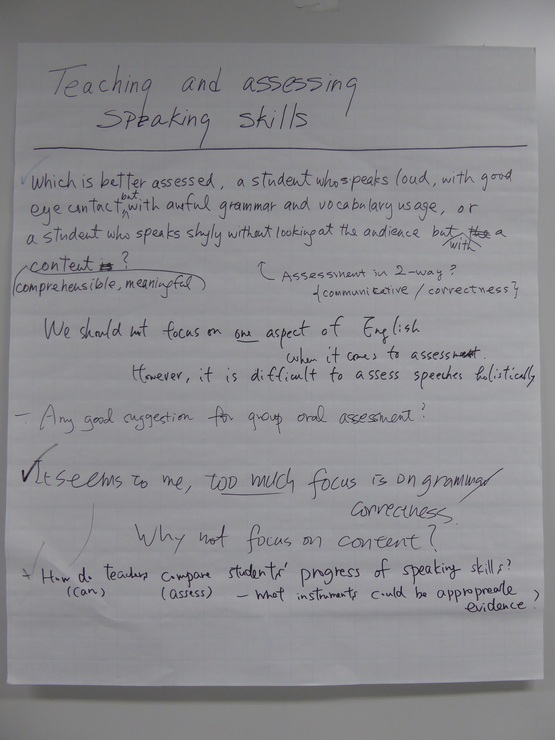 Teaching and assessing
Speaking skills
Which is better assessed, a student who speaks loud, with good
eye contact but with awful grammar and vocabulary usage, or
a student who speaks shyly without looking at the audience but with a
content?
(comprehensible, meaningful)
Assessment in 2-way?
{communicative / correctness}
We should not focus on one aspect of English
when it comes to assessment.
However, it is difficult to assess speeches holistically
- Any good suggestion for group oral assessment?
It seems to me, too much focus is on grammar
correctness.
Why not focus on content?
+ How do teachers compare students' progress of speaking skills?
(can) (assess) - what instruments could be appropreate
evidence?